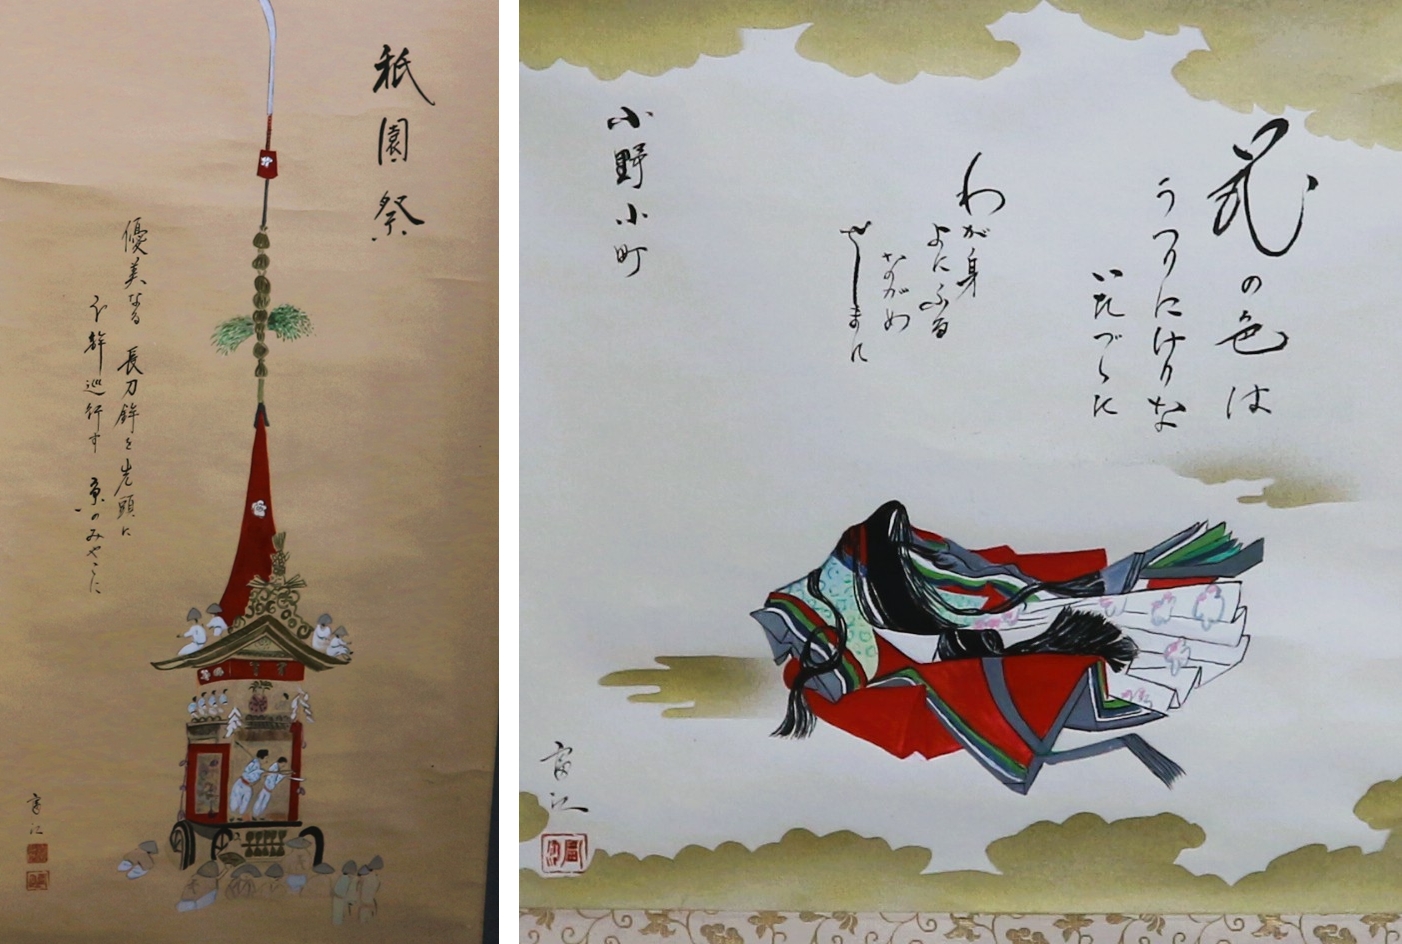 祇園祭
優美なる 長刀鉾を先頭に
山鉾巡行す 京のみやこに
富江
花の色は
うつりにけりな
いたづらに
わが身
よにふる
ながめ
せしまに
小野小町
富江